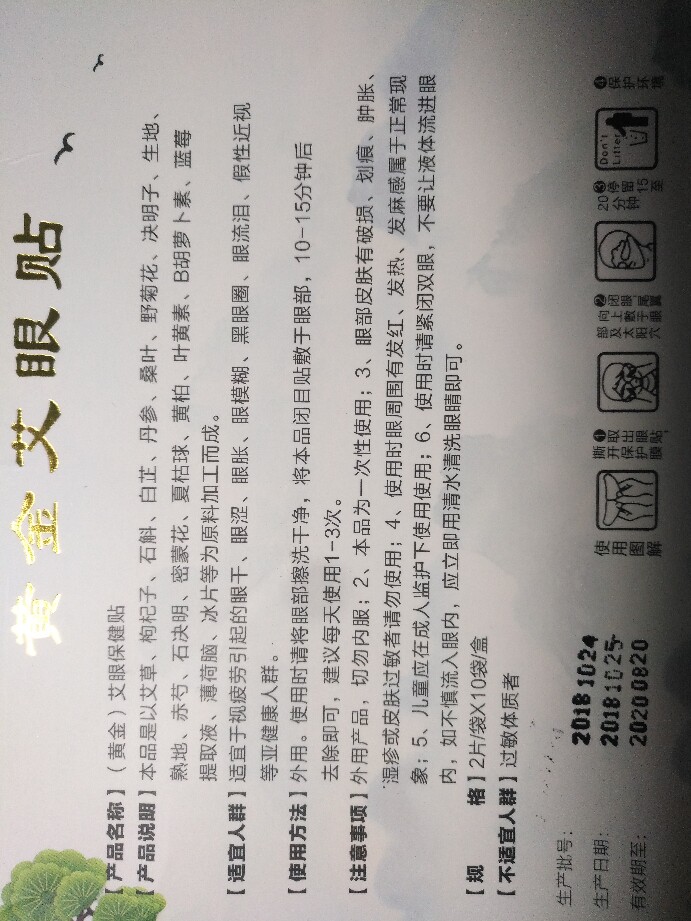 黄金艾眼贴
【产品名称】（黄金）艾眼保健贴
【产品说明】本品是以艾草、枸杞子、石斛、白芷、丹参、桑叶、野菊花、决明子、生地、
熟地、赤芍、石决明、密蒙花、夏枯球、黄柏、叶黄素、B胡萝卜素、蓝莓
提取液、薄荷脑、冰片等为原料加工而成。
【适宜人群】适宜于视疲劳引起的眼干、眼涩、眼胀、眼模糊、黑眼圈、眼流泪、假性近视
等亚健康人群。
【使用方法】外用。使用时请将眼部擦洗干净，将本品闭目贴敷于眼部，10-15分钟后
去除即可，建议每天使用1-3次。
【注意事项】外用产品，切勿内服；2、本品为一次性使用；3、眼部皮肤有破损、划痕、肿胀、
湿疹或皮肤过敏者请勿使用；4、使用时眼周围有发红、发热、发麻感属于正常现
象；5、儿童应在成人监护下使用使用；6、使用时请紧闭双眼，不要让液体流进眼
内，如不慎流入眼内，应立即用清水清洗眼睛即可。
【规 格】2片/袋X10袋/盒
【不适宜人群】过敏体质者
生产批号：20181024
生产日期：20181025
有效期至：20200820
使用
图解
❶取出眼贴，
撕开保护膜
❷闭眼，尾翼
向上敷于眼
部及太阳穴
❸停留15至
20分钟
Don't
Litter
❹保护环境